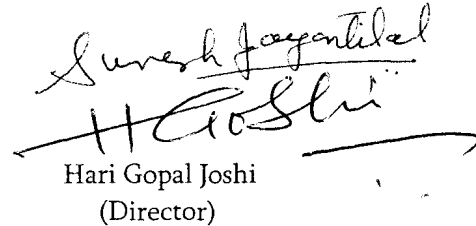 Suresh Jayantilal
HGoshi
Hari Gopal Joshi
(Director)